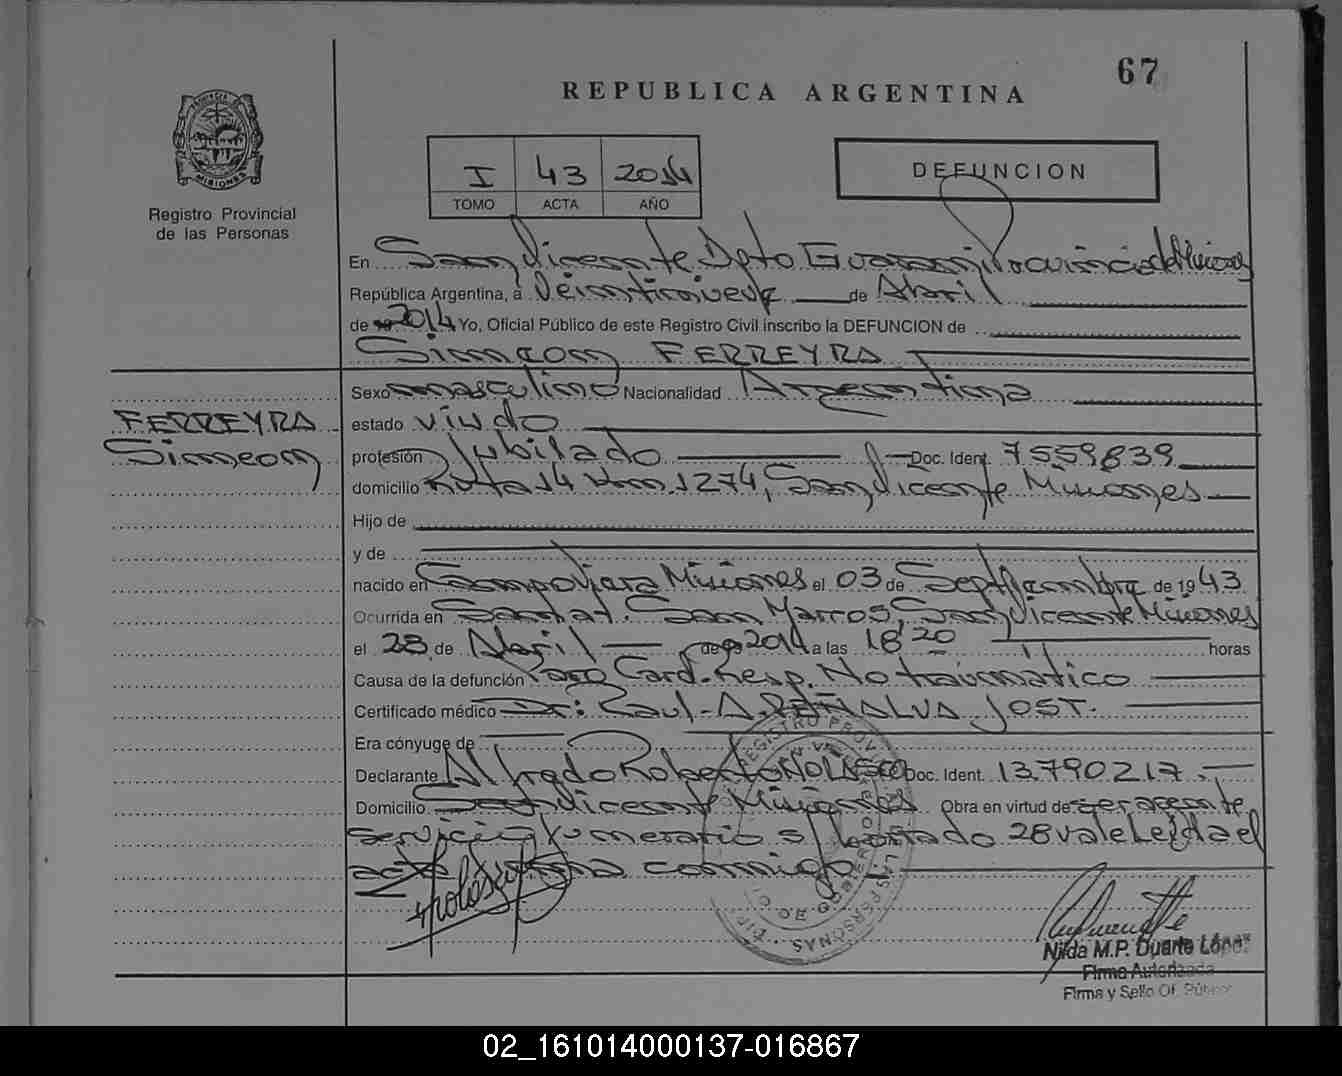 67
REPUBLICA ARGENTINA
PROVINCIA DE
MISIONES
Registro Provincial
de las Personas
I 43 2014
TOMO ACTA AÑO
DEFUNCION
En San Vicente Dpto Guarani Provincia de Misiones
República Argentina, a Veintinueve de Abril
de 2014 Yo, Oficial Público de este Registro Civil inscribo la DEFUNCION de
Simeon FERREYRA
FERREYRA
Simeon
Sexo masculino Nacionalidad Argentina
estado viudo
profesión Jubilado Doc. Ident. 7559839
domicilio Ruta 14 Km. 1274, San Vicente Misiones
Hijo de
y de
nacido en Misiones el 03 de Septiembre de 1943
Ocurrida en Sanat. San Marcos, San Vicente Misiones
el 28 de Abril de 2014 a las 18 20 horas
Causa de la defunción Paro Card. Resp. No traumático
Certificado médico Dr: Raul A. PEÑALVA JOST.
Era cónyuge de
Declarante Alfredo Roberto NOLASCO Doc. Ident. 13.790.217.
Domicilio San Vicente Misiones Obra en virtud de ser agente
servicio s/ borrado 28 vale Leida el
acta firma conmigo
Nilda M.P. Duarte López
Firma Autorizada
Firma y Sello Of. Público
02_161014000137-016867